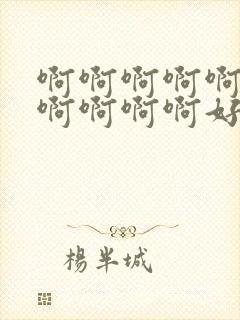 啊啊啊啊啊
啊啊啊啊好
楊半城